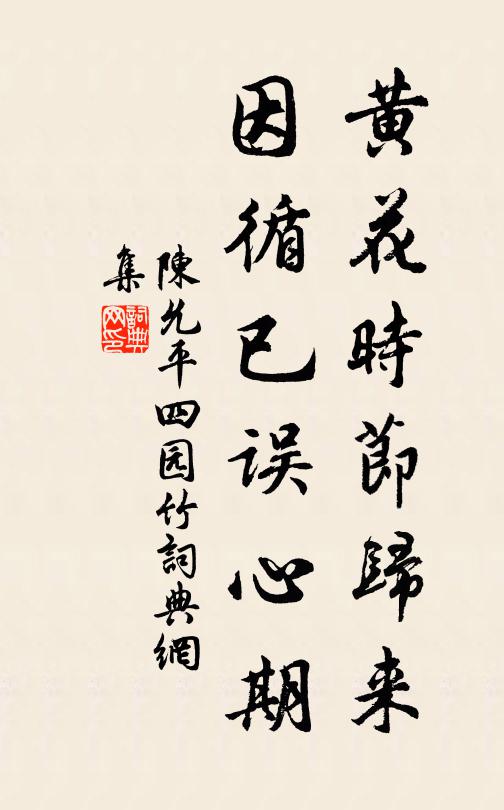 黄花時節歸来
因循已误心期
陳允平四园竹詞典網
集
詞典网印